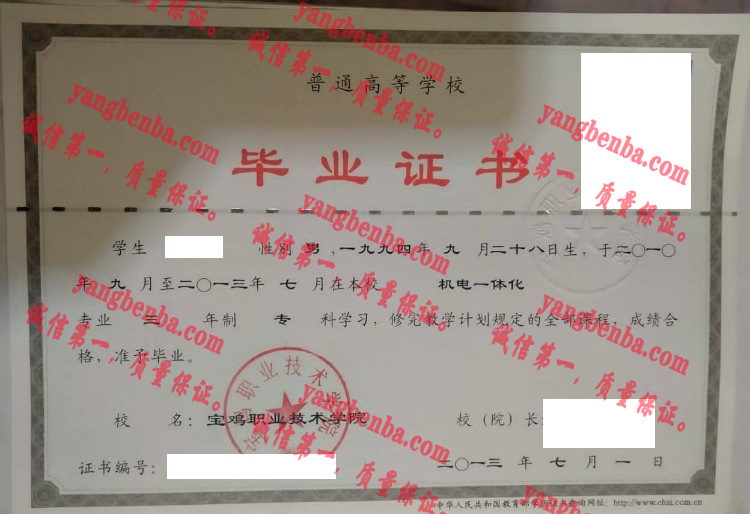 普通高等学校
毕业证书
学生 性别 男，一九九四年 九 月二十八日生，于二〇一〇
年 九 月至二〇一三年 七 月在本校 机电一体化
专业 三 年制 专 科学习，修完教学计划规定的全部课程，成绩合
格，准予毕业。
校 名：宝鸡职业技术学院 校（院）长：
宝鸡职业技术学院
证书编号： 二〇一三 年 七 月 一 日
中华人民共和国教育部学历证书查询网址：http://www.chsi.com.cn
yangbenba.com
诚信第一，质量保证。
yangbenba.com
诚信第一，质量保证。
yangbenba.com
诚信第一，质量保证。
yangbenba.com
诚信第一，质量保证。
yangbenba.com
诚信第一，质量保证。
yangbenba.com
诚信第一，质量保证。
yangbenba.com
诚信第一，质量保证。
yangbenba.com
诚信第一，质量保证。
yangbenba.com
诚信第一，质量保证。